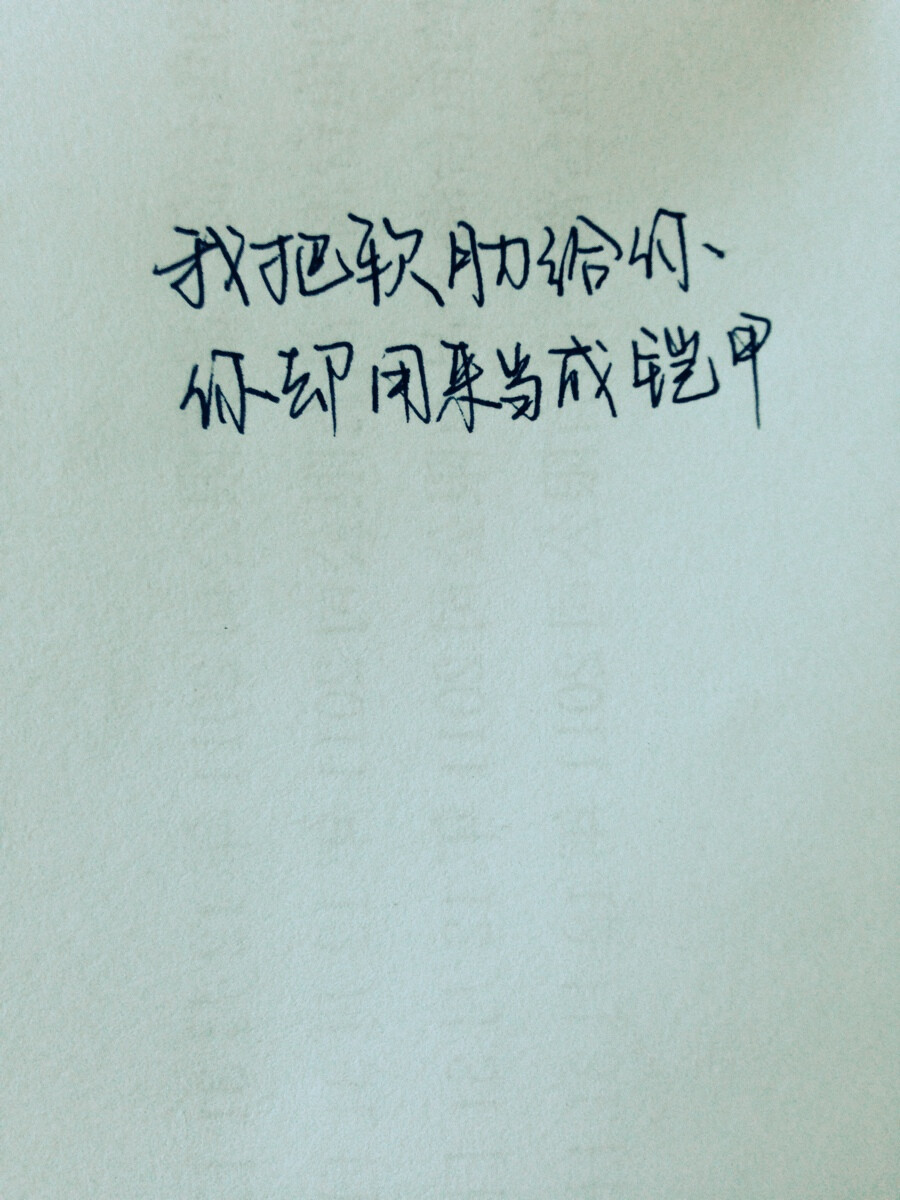 我把软肋给你、
你却用来当成铠甲